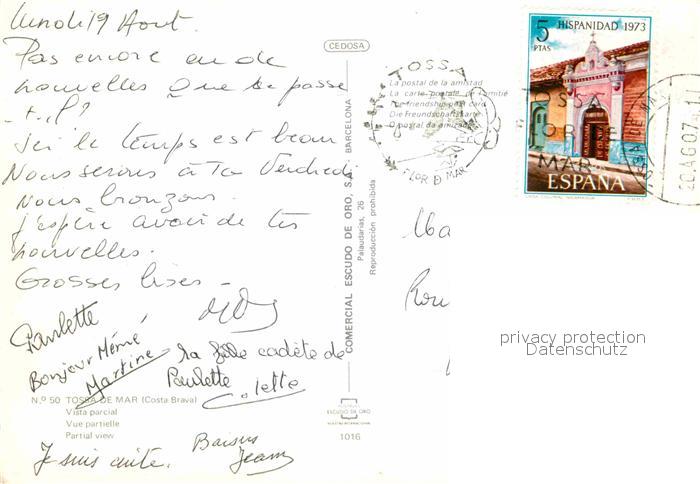 Lundi 19 Aout.
Pas encore eu de
nouvelles Que se passe
-t-il?
Ici le temps est beau
Nous serons à Vendredi
Nous bronzons.
J'espère avoir de tes
nouvelles.
Grosses bises -
Paulette
Bonjour Mémé
Martine
la fille cadète de
Paulette
Colette
N.º 50 TOSSA DE MAR (Costa Brava)
Vista parcial
Vue partielle
Partial view
Je suis cuite.
Baisers
Jean
CEDOSA
COMERCIAL ESCUDO DE ORO, S.A. BARCELONA
Palaudarias, 26
Reproducción prohibida
ESCUDO DE ORO
1016
La postal de la amistad
La carte postale de l'amitié
The friendship post card
Die Freundschaftskarte
O postal da amizade
TOSSA
FLOR DE MAR
5
PTAS
HISPANIDAD 1973
ESPAÑA
TOSSA
FLOR DE
MAR
privacy protection
Datenschutz